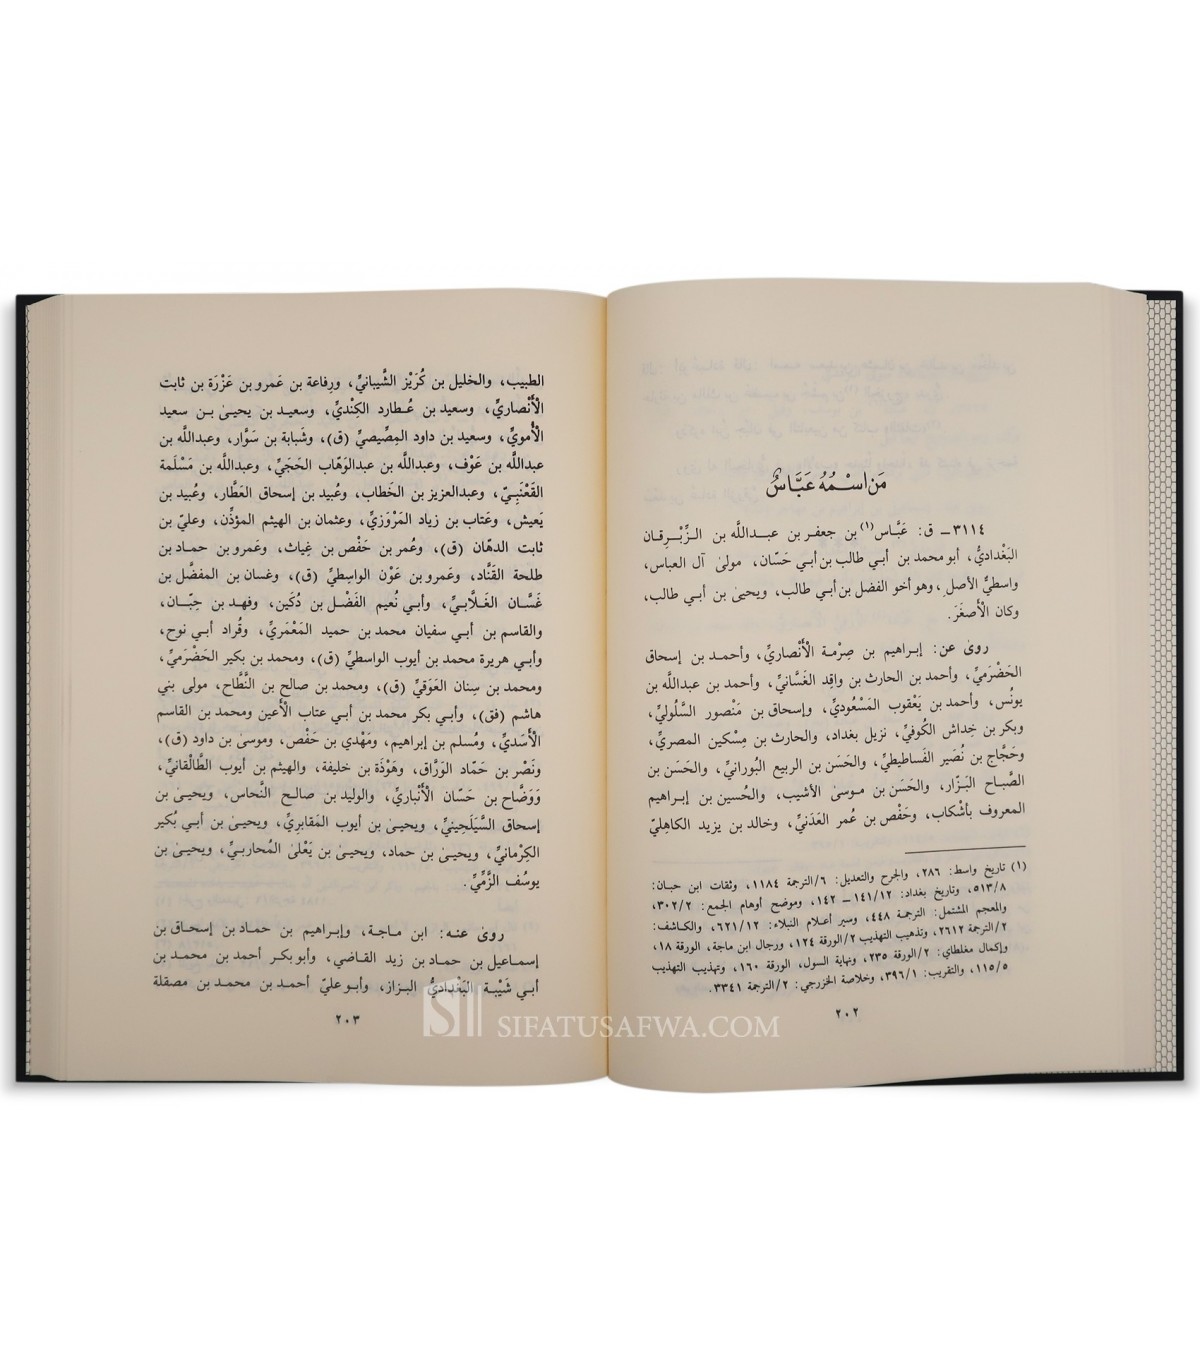 مَن اسْمُهُ عَبَّاسٌ
٣١١٤ـ ق: عَبَّاس(١) بن جعفر بن عبداللَّه بن الزِّبْرِقان
البَغْداديُّ، أبو محمد بن أبي طالب بن أبي حَسّان، مولىٰ آل العباس،
واسطيُّ الأصل، وهو أخو الفضل بن أبي طالب، ويحيىٰ بن أبي طالب،
وكان الأَصغَرَ.
روىٰ عن: إبراهيم بن صِرْمة الأَنْصاريِّ، وأحمد بن إسحاق
الحَضْرَميِّ، وأحمد بن الحارث بن واقِد الغَسَّانيِّ، وأحمد بن عبداللَّه بن
يونُس، وأحمد بن يَعْقوب المَسْعُوديِّ، وإسحاق بن مَنْصور السَّلُوليِّ،
وبكر بن خِداش الكُوفيِّ، نزيل بغداد، والحارث بن مِسْكين المصريِّ،
وحَجَّاج بن نُصَير الفَساطيطيِّ، والحَسَن بن الربيع البُورانيِّ، والحَسَن بن
الصَّباح البَزّار، والحَسَن بن موسىٰ الأشيب، والحُسين بن إبراهيم
المعروف بأَشْكاب، وحَفْص بن عُمر العَدَنيِّ، وخالد بن يزيد الكاهِليّ
(١) تاريخ واسط: ٢٨٦، والجرح والتعديل: ٦/الترجمة ١١٨٤، وثقات ابن حبان:
٥١٣/٨، وتاريخ بغداد: ١٤١/١٢ – ١٤٢، وموضح أوهام الجمع: ٣٠٢/٢،
والمعجم المشتمل: الترجمة ٤٤٨، وسير أعلام النبلاء: ٦٢١/١٢، والكاشف:
٢/الترجمة ٢٦١٢، وتذهيب التهذيب ٢/الورقة ١٢٤، ورجال ابن ماجة، الورقة ١٨،
وإكمال مغلطاي: ٢/الورقة ٢٣٥، ونهاية السول، الورقة ١٦٠، وتهذيب التهذيب
١١٥/٥، والتقريب: ٣٩٦/١، وخلاصة الخزرجي: ٢/الترجمة ٣٣٤١.
٢٠٢
الطبيب، والخليل بن كُرَيْز الشَّيبانيِّ، ورِفاعة بن عَمرو بن عَزْرَة بن ثابت
الأَنْصاريِّ، وسعيد بن عُطارد الكِنْديِّ، وسعيد بن يحيىٰ بن سعيد
الأُمويِّ، وسعيد بن داود المِصِّيصيِّ (ق)، وشَبابة بن سَوَّار، وعبداللَّه بن
عبداللَّه بن عَوْف، وعبداللَّه بن عبدالوَهّاب الحَجَبيِّ، وعبداللَّه بن مَسْلَمة
القَعْنَبيّ، وعبدالعزيز بن الخَطاب، وعُبيد بن إسحاق العَطَّار، وعُبيد بن
يَعيش، وعَتاب بن زياد المَرْوَزيِّ، وعثمان بن الهيثم المؤذِّن، وعليّ بن
ثابت الدهّان (ق)، وعُمر بن حَفْص بن غِياث، وعَمرو بن حماد بن
طلحة القَنَّاد، وعَمرو بن عَوْن الواسِطيِّ (ق)، وغسان بن المفضَّل بن
غَسَّان الغَلَّابيِّ، وأبي نُعيم الفَضْل بن دُكَين، وفهد بن حِبّان،
والقاسم بن أبي سفيان محمد بن حميد المَعْمَريِّ، وقُراد أبي نوح،
وأبي هريرة محمد بن أيوب الواسطيِّ (ق)، ومحمد بن بكير الحَضْرَميِّ،
ومحمد بن سِنان العَوَقيِّ (ق)، ومحمد بن صالح بن النَّطَّاح، مولى بني
هاشم (فق)، وأبي بكر محمد بن أبي عتاب الأَعين ومحمد بن القاسم
الأَسَديِّ، ومُسلم بن إبراهيم، ومَهْدي بن حَفْص، وموسىٰ بن داود (ق)،
ونَصْر بن حَمَّاد الوَرَّاق، وهَوْذَة بن خليفة، والهيثم بن أيوب الطَّالْقانيِّ،
وَوَضَّاح بن حَسَّان الأَنْباريِّ، والوليد بن صالح النَّحاس، ويحيىٰ بن
إسحاق السَّيْلَحِينيِّ، ويحيىٰ بن أيوب المَقابريِّ، ويحيىٰ بن أبي بُكير
الكِرْمانيِّ، ويحيىٰ بن حماد، ويحيىٰ بن يَعْلىٰ المُحاربيِّ، ويحيىٰ بن
يوسُف الزَّمِّيِّ.
روىٰ عنه: ابن ماجة، وإبراهيم بن حماد بن إسحاق بن
إسماعيل بن حماد بن زيد القاضي، وأبو بكر أحمد بن محمد بن
أبي شَيْبة البَغْداديُّ البزاز، وأبو عليّ أحمد بن محمد بن مصقلة
٢٠٣
SIFATUSAFWA.COM